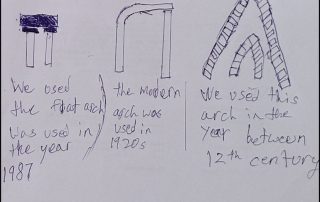 We used
the float arch
was used in
the year
1987
the modern
arch was
used in
1920s
We used this
arch in the
year between
12th century